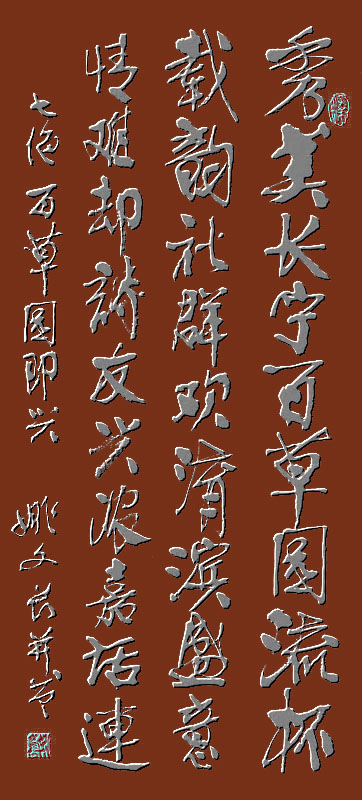 秀美长宁百草园流杯
载韵社群欢淯滨盛意
情难却詩友兴浓嘉话連
七绝 百草园即兴 姚文长并书